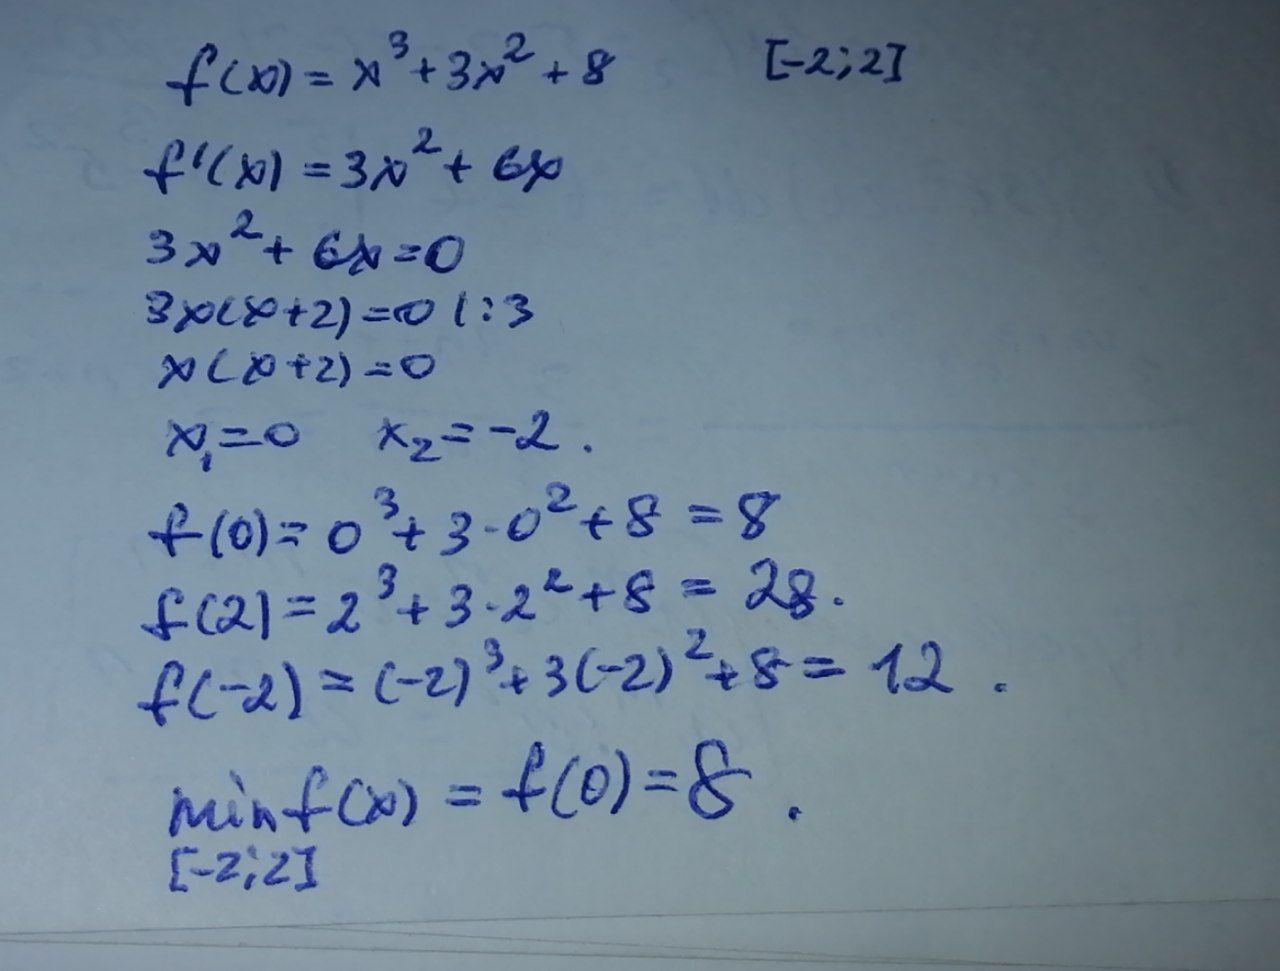 f(x) = x³ + 3x² + 8 [-2;2]
f'(x) = 3x² + 6x
3x² + 6x = 0
3x(x+2) = 0 |:3
x(x+2) = 0
x₁ = 0 x₂ = -2.
f(0) = 0³ + 3·0² + 8 = 8
f(2) = 2³ + 3·2² + 8 = 28.
f(-2) = (-2)³ + 3(-2)² + 8 = 12.
min f(x) = f(0) = 8.
[-2;2]